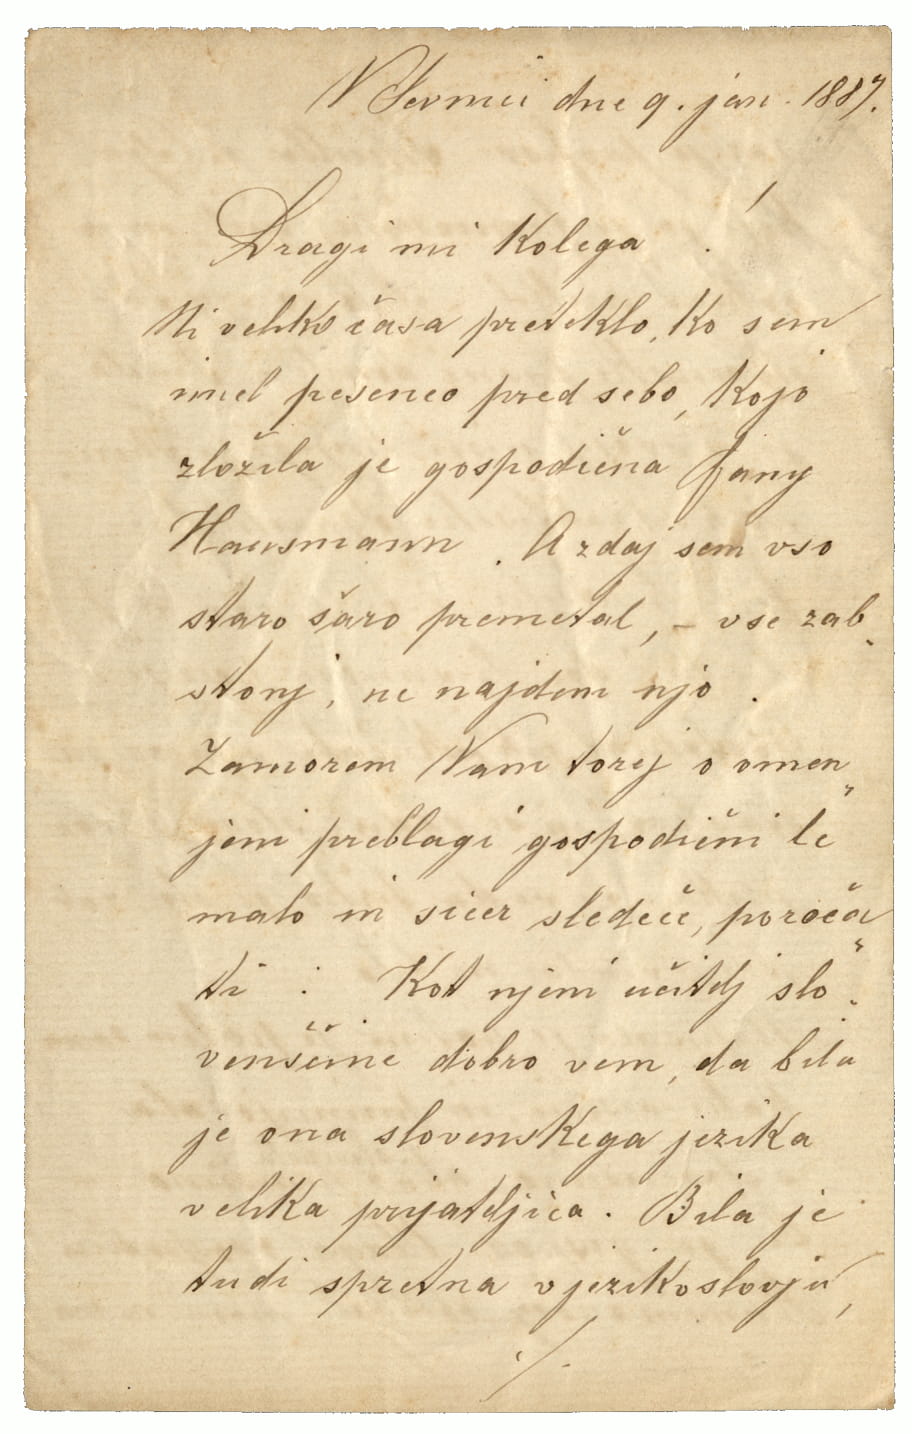 V Sevnici dne 9. jan. 1887.
Dragi mi Kolega !
Ni veliko časa preteklo, ko sem
imel pesenco pred sebo, kojo
zložila je gospodična Fany
Hausmann. A zdaj sem vso
staro šaro premetal, – vse zab-
stonj, ne najdem njo.
Zamorem Vam torej o omen-
jeni preblagi gospodični le
malo in sicer sledeče, poroča-
ti : Kot njeni učitelj slo-
venščine dobro vem, da bila
je ona slovenskega jezika
velika prijateljica. Bila je
tudi spretna v jezikoslovju,
./.